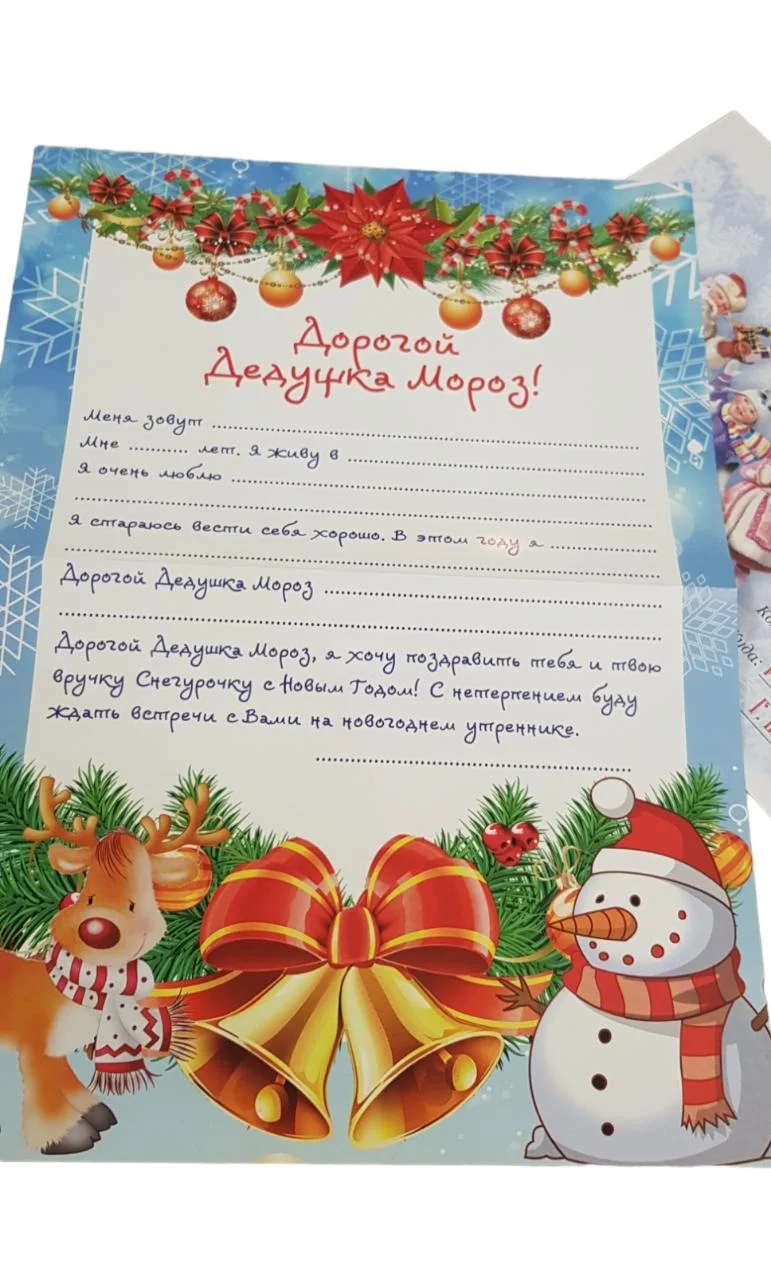 Дорогой
Дедушка Мороз!
Меня зовут ..........................................................
Мне ........... лет. Я живу в ........................................
Я очень люблю ........................................................
................................................................................
Я стараюсь вести себя хорошо. В этом году я ..................
................................................................................
Дорогой Дедушка Мороз ..............................................
................................................................................
Дорогой Дедушка Мороз, я хочу поздравить тебя и твою
вручку Снегурочку с Новым Годом! С нетерпением буду
ждать встречи с Вами на новогоднем утреннике.
..........................................................